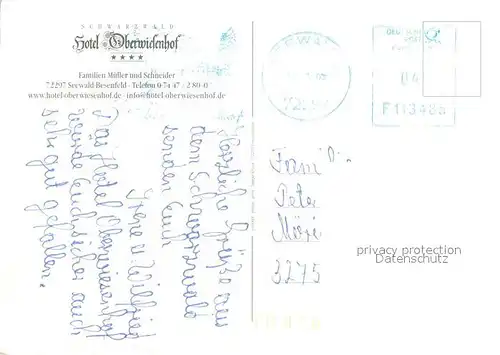 SCHWARZWALD
Hotel Oberwiesenhof
★★★★
Familien Müller und Schneider
72297 Seewald-Besenfeld · Telefon 0 74 47 / 2 80-0
www.hotel-oberwiesenhof.de · info@hotel-oberwiesenhof.de
Herzliche Grüße aus
dem Schwarzwald
senden Euch
Irene u. Wilfried
Das Hotel Oberwiesenhof
würde Euch sicher auch
sehr gut gefallen.
Fami
Pete
Möri
3275
privacy protection
Datenschutz